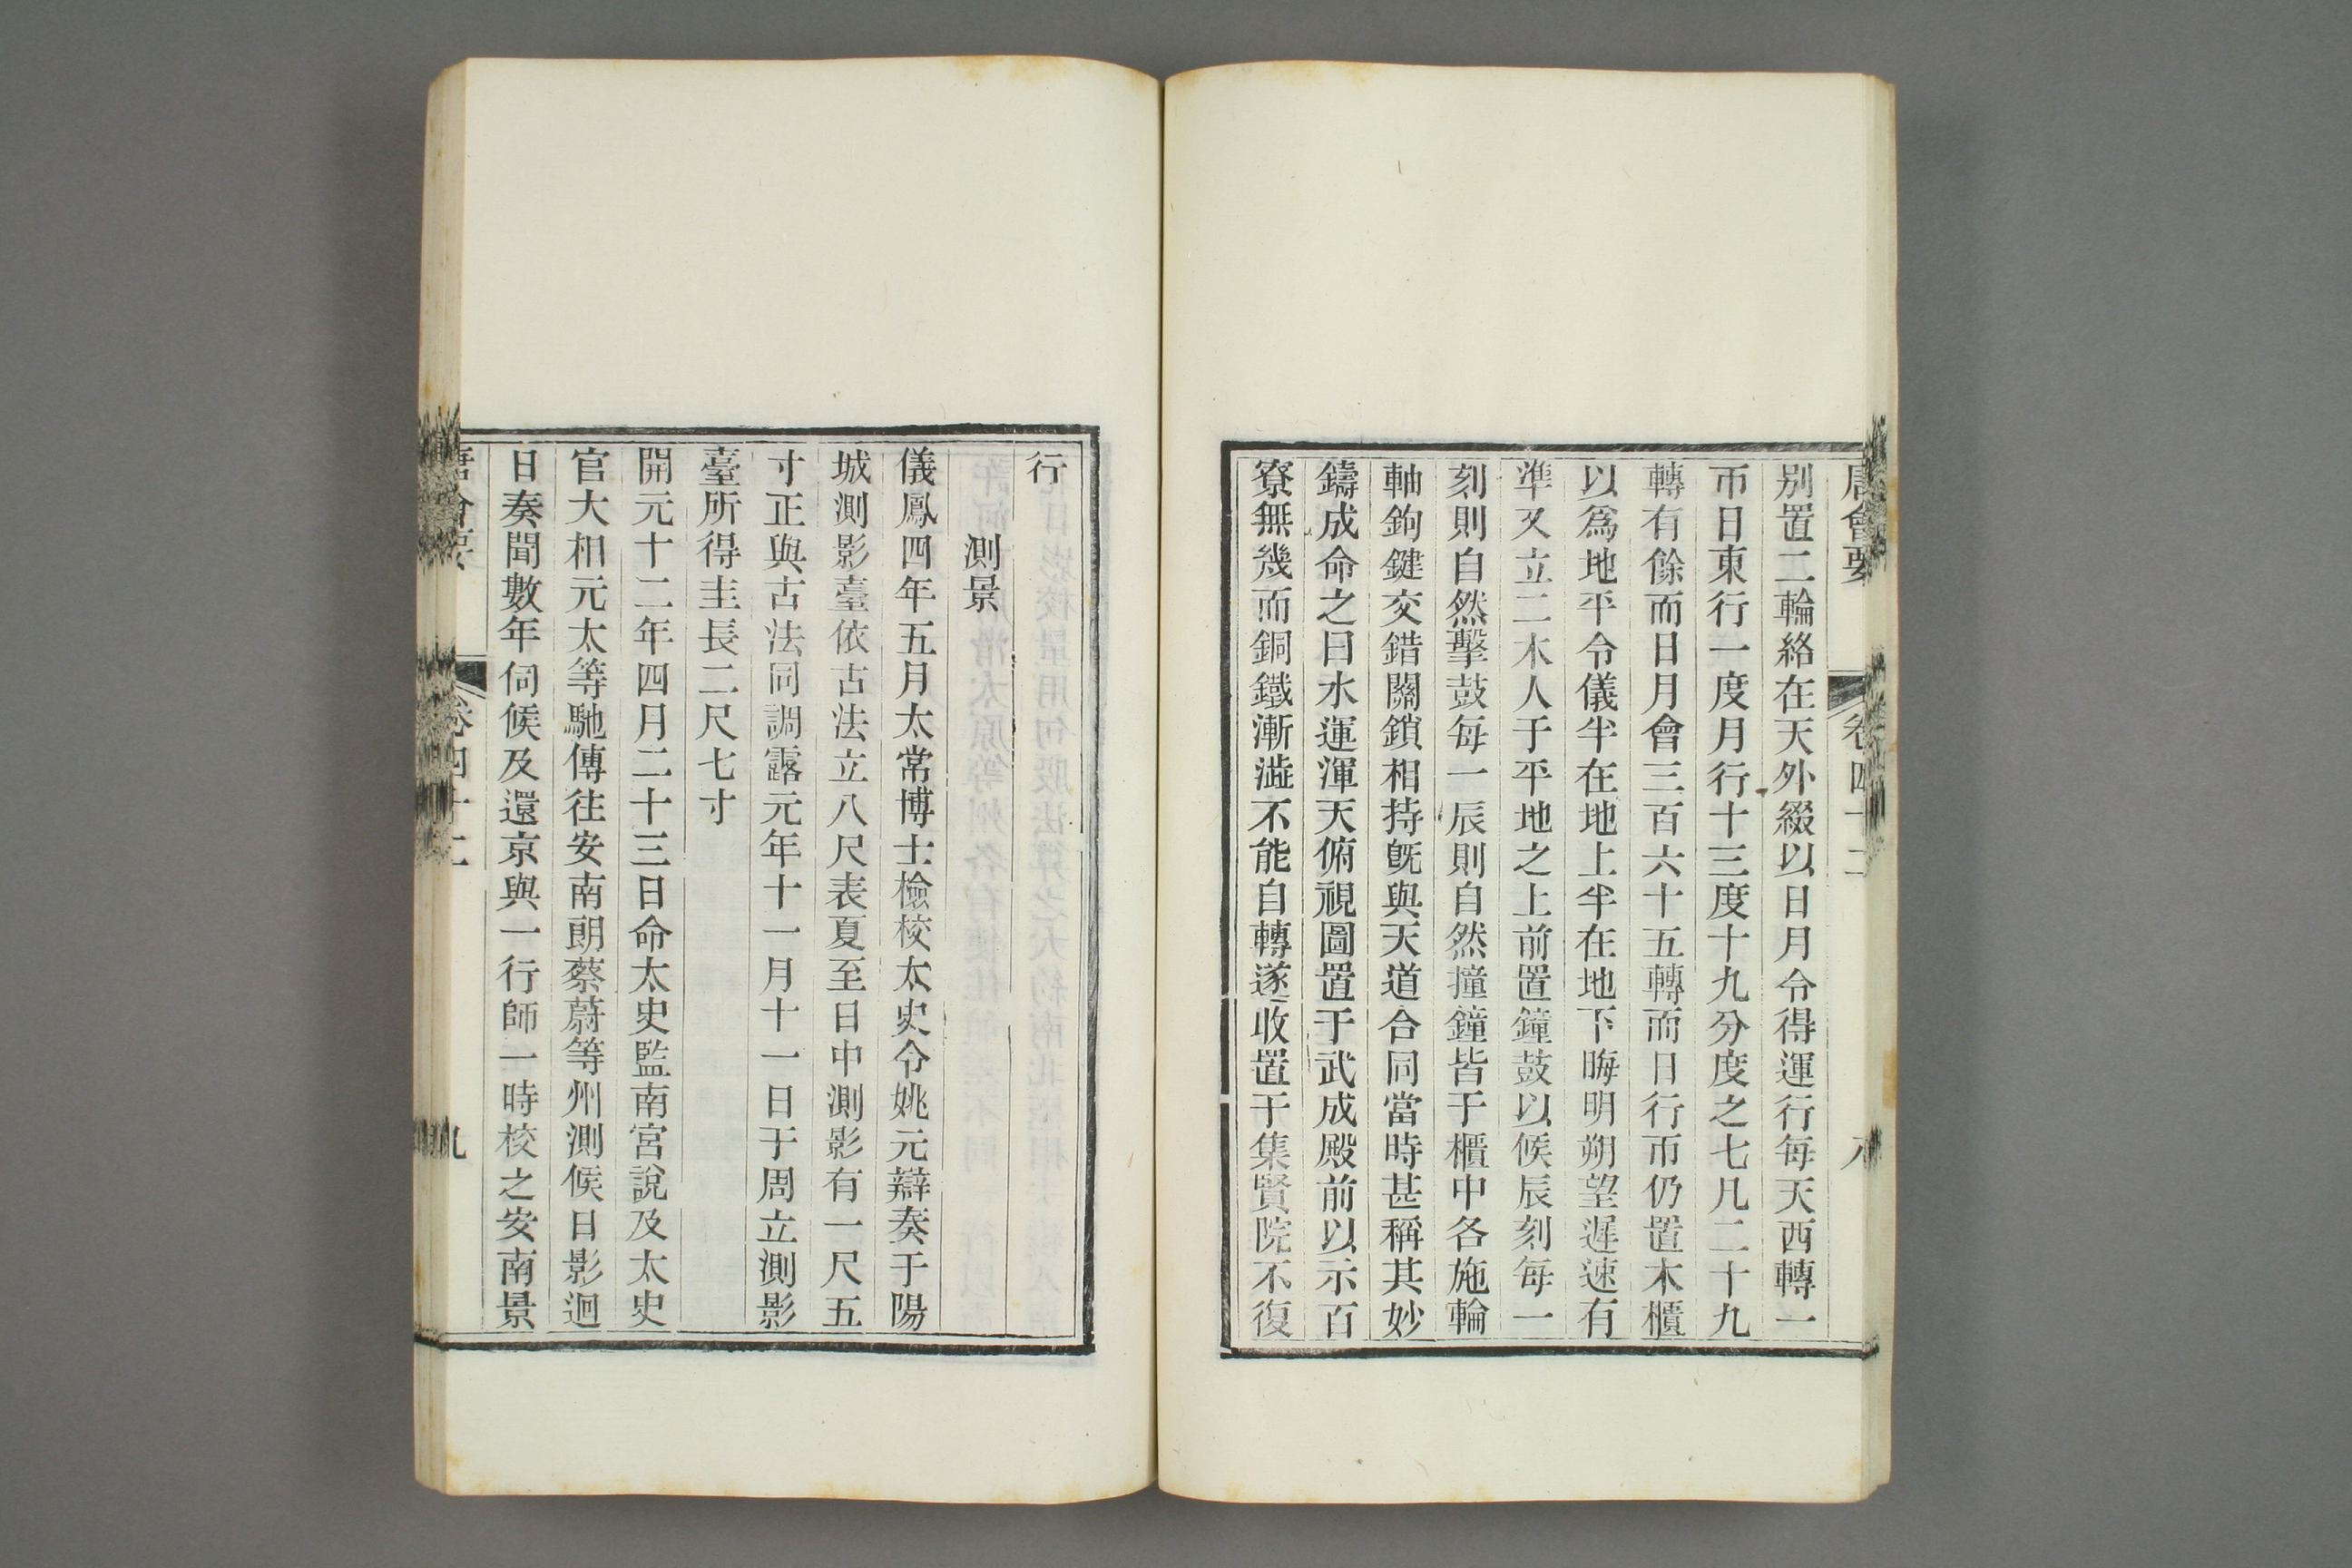 唐會要 卷四十二 八
別置二輪絡在天外綴以日月令得運行每天西轉一
帀日東行一度月行十三度十九分度之七凡二十九
轉有餘而日月會三百六十五轉而日行帀仍置木櫃
以爲地平令儀半在地上半在地下晦明朔望遲速有
準又立二木人于平地之上前置鐘鼓以候辰刻每一
刻則自然擊鼓每一辰則自然撞鐘皆于櫃中各施輪
軸鉤鍵交錯關鎖相持旣與天道合同當時甚稱其妙
鑄成命之曰水運渾天俯視圖置于武成殿前以示百
寮無幾而銅鐵漸澁不能自轉遂收置于集賢院不復
行
測景
儀鳳四年五月太常博士檢校太史令姚元辯奏于陽
城測影臺依古法立八尺表夏至日中測影有一尺五
寸正與古法同調露元年十一月十一日于周立測影
臺所得圭長二尺七寸
開元十二年四月二十三日命太史監南宮說及太史
官大相元太等馳傳往安南朗蔡蔚等州測候日影迴
日奏聞數年伺候及還京與一行師一時校之安南景
唐會要 卷四十二 九